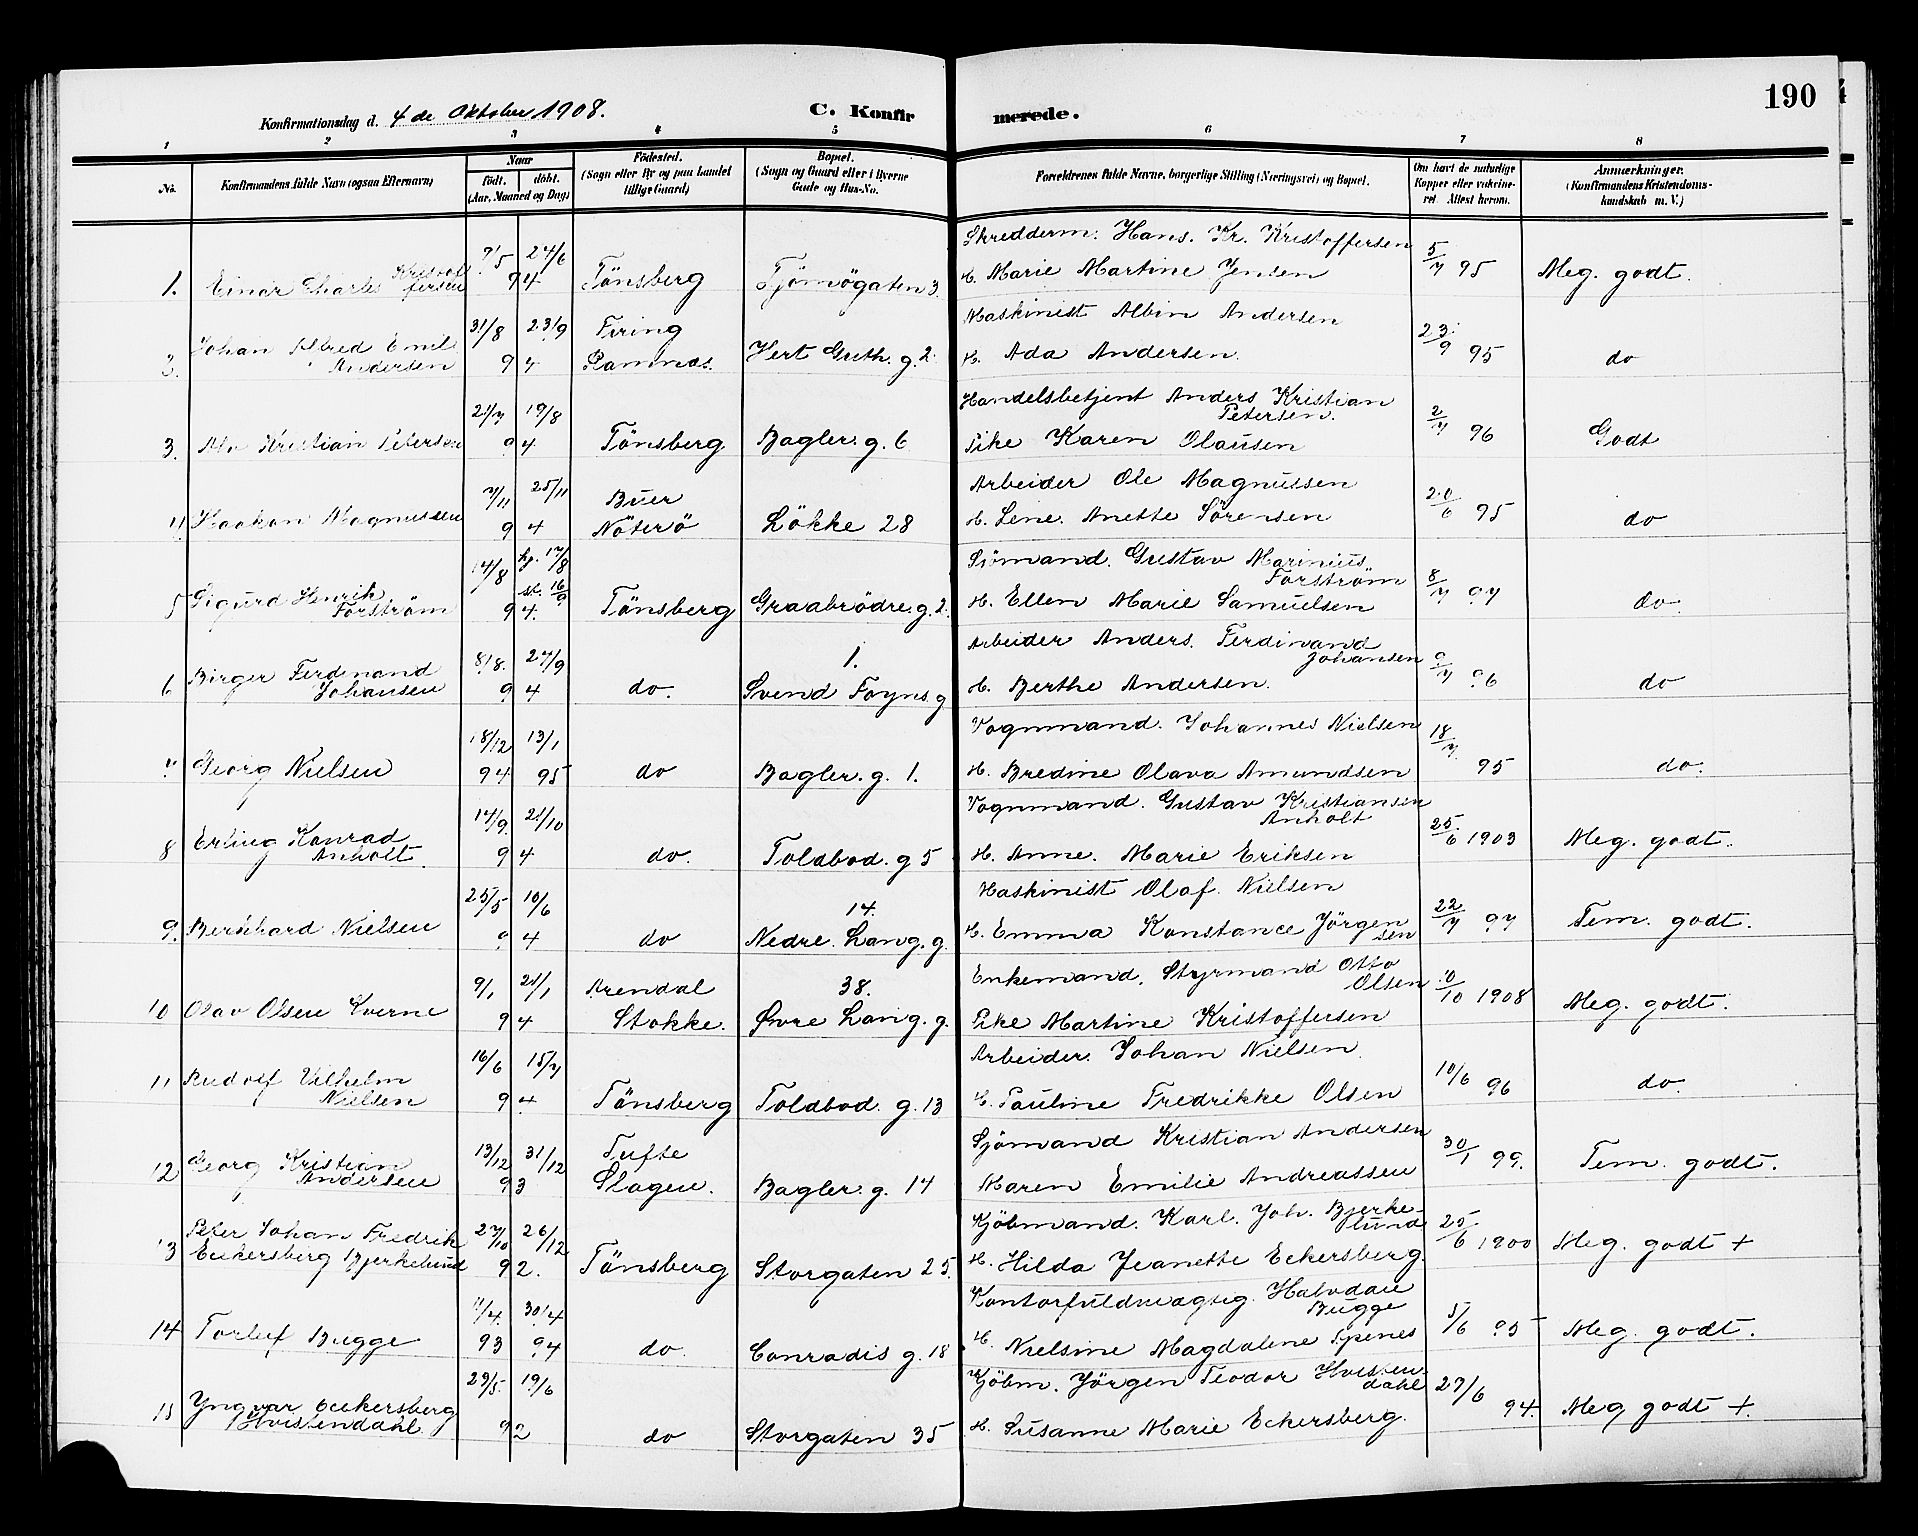 190
Konfirmationsdag d. 4 de Oktober 1908. C. Konfirmerede.
1 2 3 4 5 6 7 8
No. Konfirmandens fulde Navn (ogsaa Efternavn) Naar födt. döbt. (Aar, Maaned og Dag) Födested. (Sogn eller By og paa Landet tillige Gaard) Bopæl. (Sogn og Gaard eller i Byerne Gade og Hus-No. Forældrenes fulde Navne, borgerlige Stilling (Næringsvei) og Bopæl. Om havt de naturlige Kopper eller vakcineret. Attest herom. Anmærkninger. (Konfirmandens Kristendomskundskab m. V.)
7/5 24/6 Skredderm: Hans. Kr. Kristoffersen 5/7
1. Einar Charles Kristoffersen 94 Tönsberg Tjömögaten 3. H. Marie Martine Jensen 95 Meg. godt.
31/8 23/9 Firing Maskinist Albin Andersen 23/9
2. Johan Alfred Emil Andersen 94 Ramnæs. Hert Guth. g. 2. H. Ada Andersen. 95 do
21/7 19/8 Handelsbetjent Anders Kristian Petersen. 2/7
3. Kristian Petersen 94 Tönsberg Bagler. g. 6 Pike Karen Olausen 96 Godt
7/11 25/11 Buer Arbeider Ole Magnussen 20/6
4. Haakon Magnussen 94 Nöterö Lökke 28 H. Lene. Anette Sörensen 95 do
14/8 hj. 17/8 st. 16/9 Sjömand. Gustav Marinius. Forström 8/7
5 Sigurd Henrik Forström 94. Tönsberg Graabrödre. g. 2. H. Ellen Marie Samuelsen 97 do
8/8. 27/9 1. Arbeider Anders. Ferdinand Johansen 9/7
6 Birger Ferdinand Johansen 94 do. Svend Foyns. g H. Berthe Andersen. 96 do
18/12 13/1 Vognmand. Johannes Nielsen 18/7.
7 Georg Nielsen 94 95 do Bagler. g. 1. H. Bredine Olava Amundsen 95 do.
14/9. 21/10 Vognmand. Gustav Kristiansen Anholt 25/6
8 Erling Konrad Anholt. 94 do. Toldbod. g 5 H. Anne. Marie Eriksen 1903 Meg. godt.
25/5 10/6 14. Maskinist Olaf. Nielsen 22/7
9. Bernhard Nielsen 94 do Nedre. Lang. g. H. Emma Konstance Jörgensen 97 Tem. godt.
9/1 21/1 Arendal 38. Enkemand. Styrmand Otto Olsen 10/10
10 Olav Olsen Kverne 94 Stokke. Övre Lang. g. Pike Martine Kristoffersen 1908 Meg. godt.
16/6 15/7 Arbeider. Johan Nielsen. 10/6
11 Rudolf Vilhelm Nielsen 94 Tönsberg Toldbod. g. 13 H. Pauline Fredrikke Olsen 96 do.
13/12 31/12 Tufte Sjömand Kristian Andersen 30/1
12 Georg Kristian Andersen 93 Slagen. Bagler. g. 14 Maren Emilie Andreassen 99. Tem. godt.
27/10 26/12 Kjöbmand. Karl. Joh. Bjerkelund 25/6
13 Peter Johan Fredrik Eckersberg Bjerkelund 92. Tönsberg Storgaten 25. H. Hilda Jeanette Eckersberg. 1900 Meg. godt +
11/4. 30/4 Kontorfuldmægtig. Halvdan Bugge 5/6
14 Torluf Bugge 93 94 do. Conradis g. 18 H. Nielsine Magdalene Spenes 95 Meg. godt.
29/5. 19/6 Kjöbm. Jörgen Teodor Hvistendahl 27/6
15 Yngvar Eckersberg Hvistendahl. 92 do Storgaten 35 H. Susanne Marie Eckersberg. 94. Meg godt +.